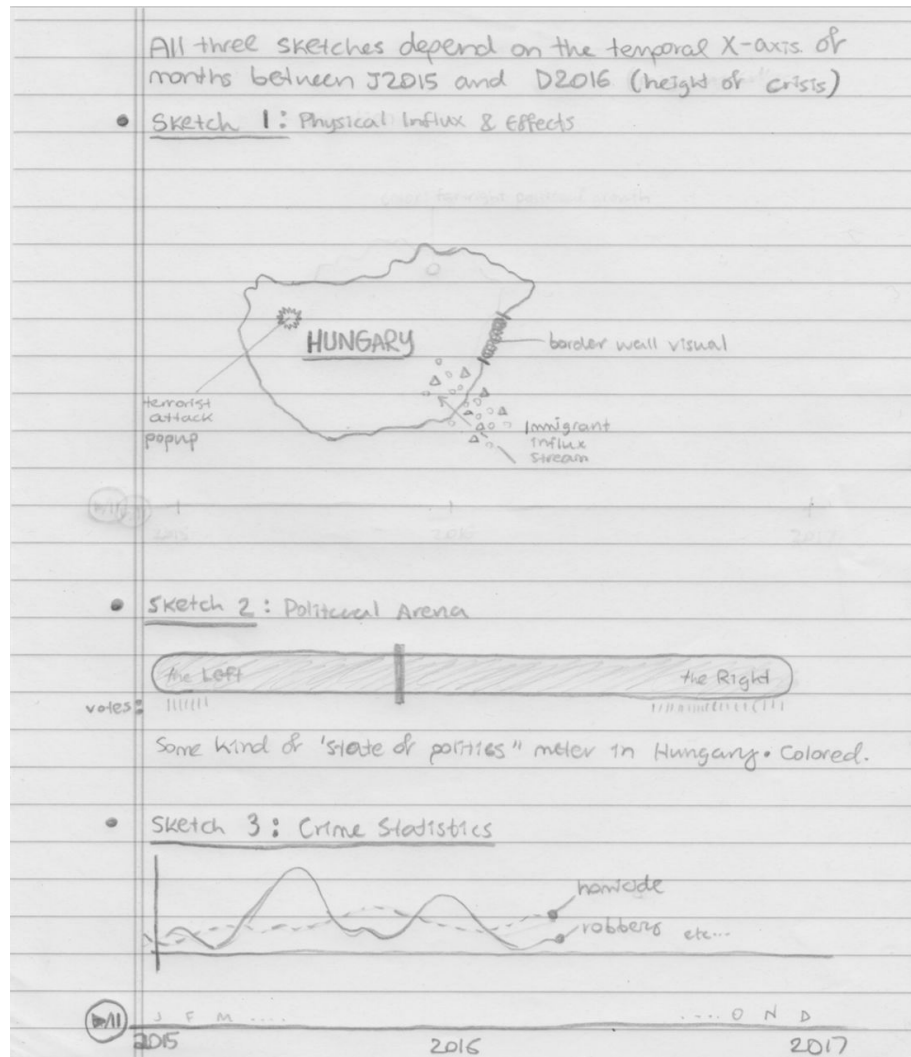 All three sketches depend on the temporal X-axis of
months between J2015 and D2016 (height of crisis)
Sketch 1: Physical Influx & Effects
HUNGARY
border wall visual
terrorist
attack
popup
Immigrant
influx
stream
2015
2017
Sketch 2: Politcal Arena
the Left
the Right
votes:
Some kind of "state of politics" meter in Hungary. Colored.
Sketch 3: Crime Statistics
homicide
robbery etc...
J F M .... .... O N D
2015 2016 2017